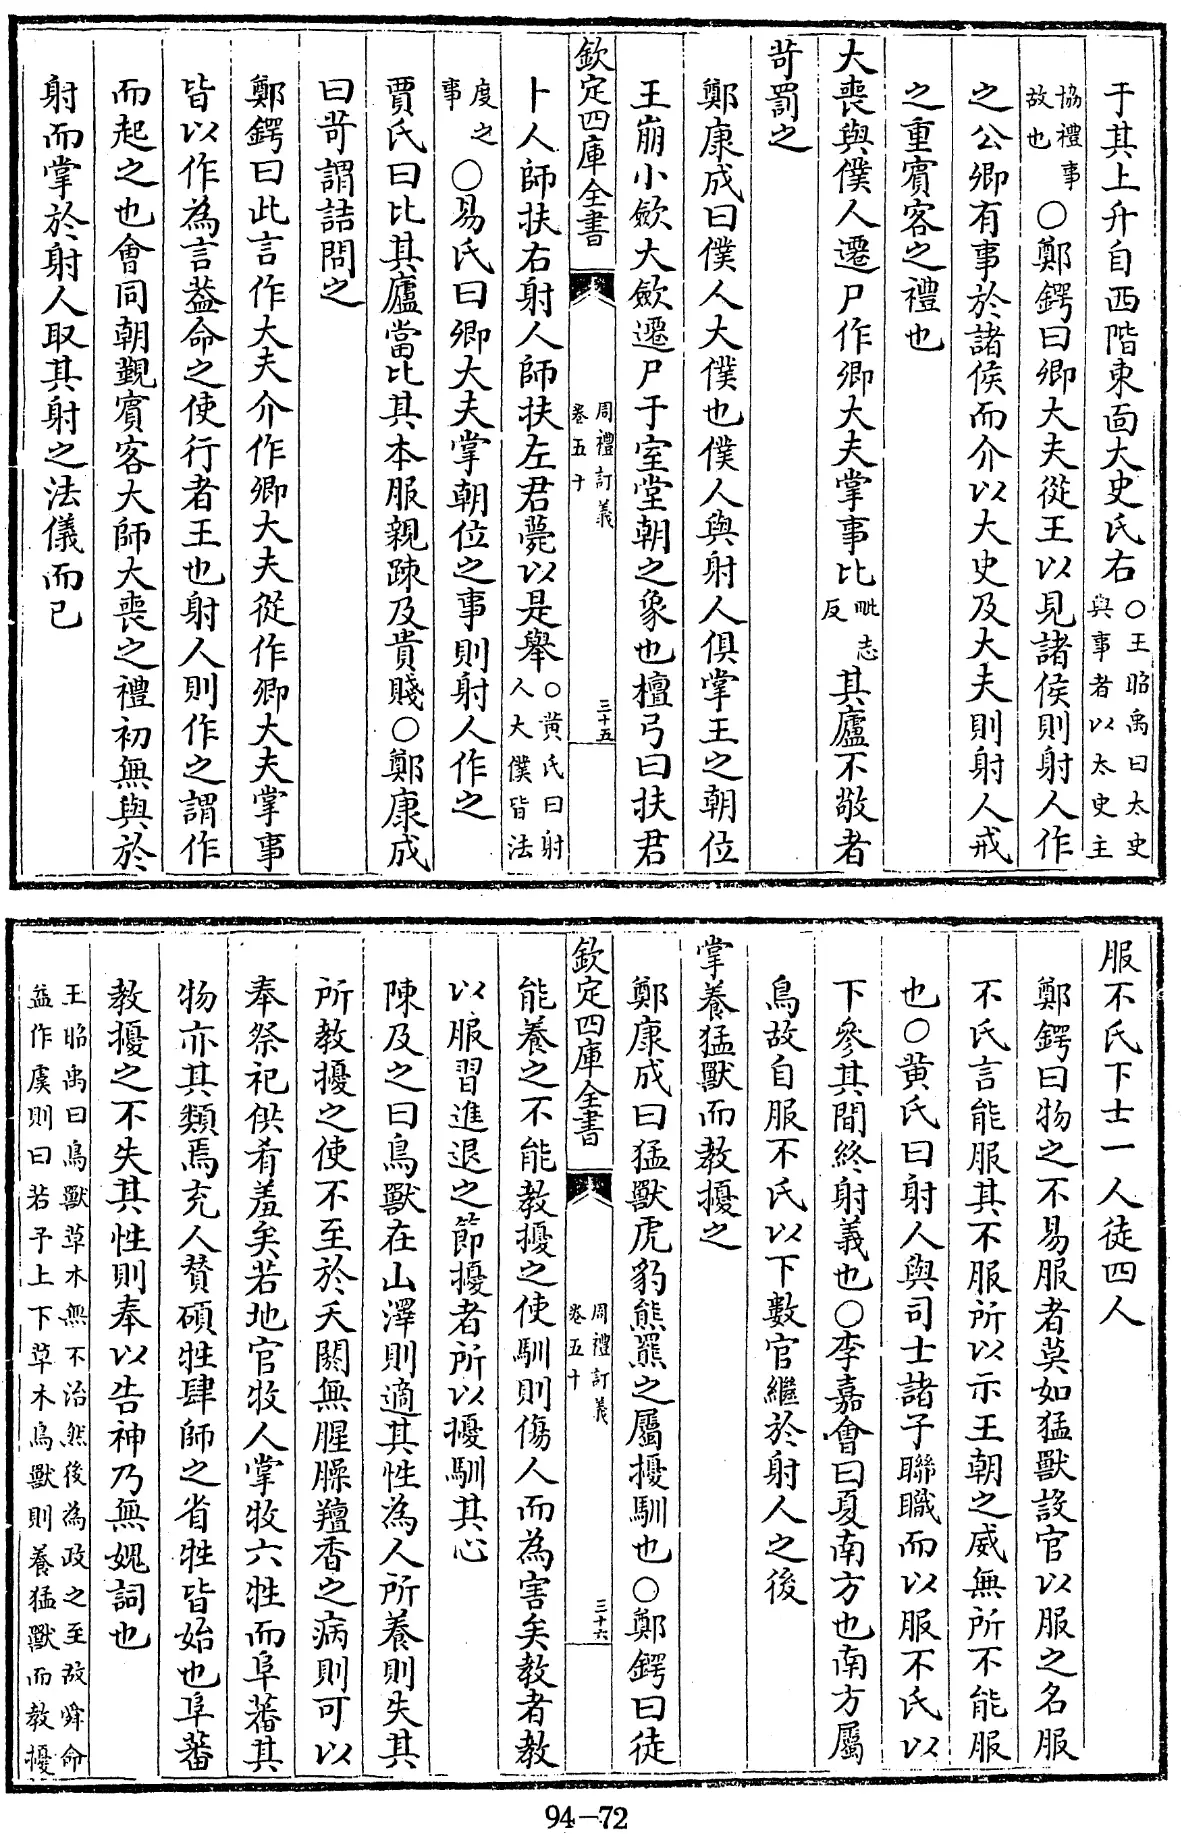 于其上升自西階東面大史氏右○王昭禹曰太史與事者以太史主
協禮事故也○鄭鍔曰卿大夫從王以見諸侯則射人作
之公卿有事於諸侯而介以大史及大夫則射人戒
之重賓客之禮也
大喪與僕人遷尸作卿大夫掌事比毗志反其廬不敬者
苛罰之
鄭康成曰僕人大僕也僕人與射人俱掌王之朝位
王崩小斂大斂遷尸于室堂朝之象也檀弓曰扶君
欽定四庫全書 周禮訂義卷五十 三十五
卜人師扶右射人師扶左君薨以是舉○黄氏曰射人大僕皆法
度之事○易氏曰卿大夫掌朝位之事則射人作之
賈氏曰比其廬當比其本服親踈及貴賤○鄭康成
曰苛謂詰問之
鄭鍔曰此言作大夫介作卿大夫從作卿大夫掌事
皆以作為言葢命之使行者王也射人則作之謂作
而起之也會同朝覲賓客大師大喪之禮初無與於
射而掌於射人取其射之法儀而已
服不氏下士一人徒四人
鄭鍔曰物之不易服者莫如猛獸設官以服之名服
不氏言能服其不服所以示王朝之威無所不能服
也○黄氏曰射人與司士諸子聯職而以服不氏以
下參其間終射義也○李嘉會曰夏南方也南方屬
鳥故自服不氏以下數官繼於射人之後
掌養猛獸而教擾之
鄭康成曰猛獸虎豹熊羆之屬擾馴也○鄭鍔曰徒
欽定四庫全書 周禮訂義卷五十 三十六
能養之不能教擾之使馴則傷人而為害矣教者教
以服習進退之節擾者所以擾馴其心
陳及之曰鳥獸在山澤則適其性為人所養則失其
所教擾之使不至於夭閼無腥臊羶香之病則可以
奉祭祀供肴羞矣若地官牧人掌牧六牲而阜蕃其
物亦其類焉充人賛碩牲肆師之省牲皆始也阜蕃
教擾之不失其性則奉以告神乃無媿詞也
王昭禹曰鳥獸草木無不治然後為政之至故舜命
益作虞則曰若予上下草木鳥獸則養猛獸而教擾
94-72